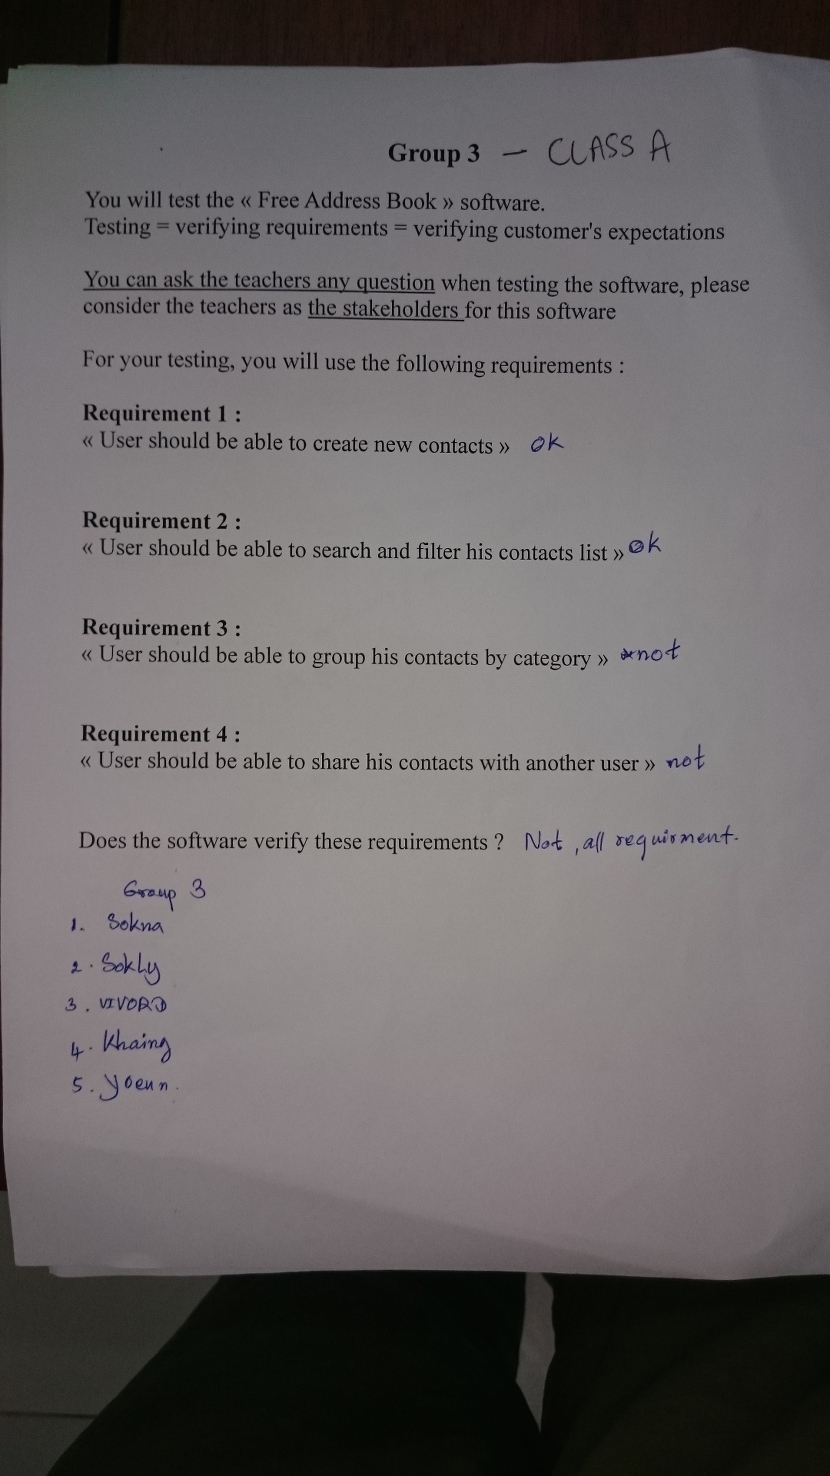 Group 3 — CLASS A
You will test the « Free Address Book » software.
Testing = verifying requirements = verifying customer's expectations
You can ask the teachers any question when testing the software, please
consider the teachers as the stakeholders for this software
For your testing, you will use the following requirements :
Requirement 1 :
« User should be able to create new contacts » ok
Requirement 2 :
« User should be able to search and filter his contacts list » ok
Requirement 3 :
« User should be able to group his contacts by category » not
Requirement 4 :
« User should be able to share his contacts with another user » not
Does the software verify these requirements ? Not , all requirment.
Group 3
1. Sokna
2. Sokly
3. VIVORD
4. Khaing
5. Yoeun.